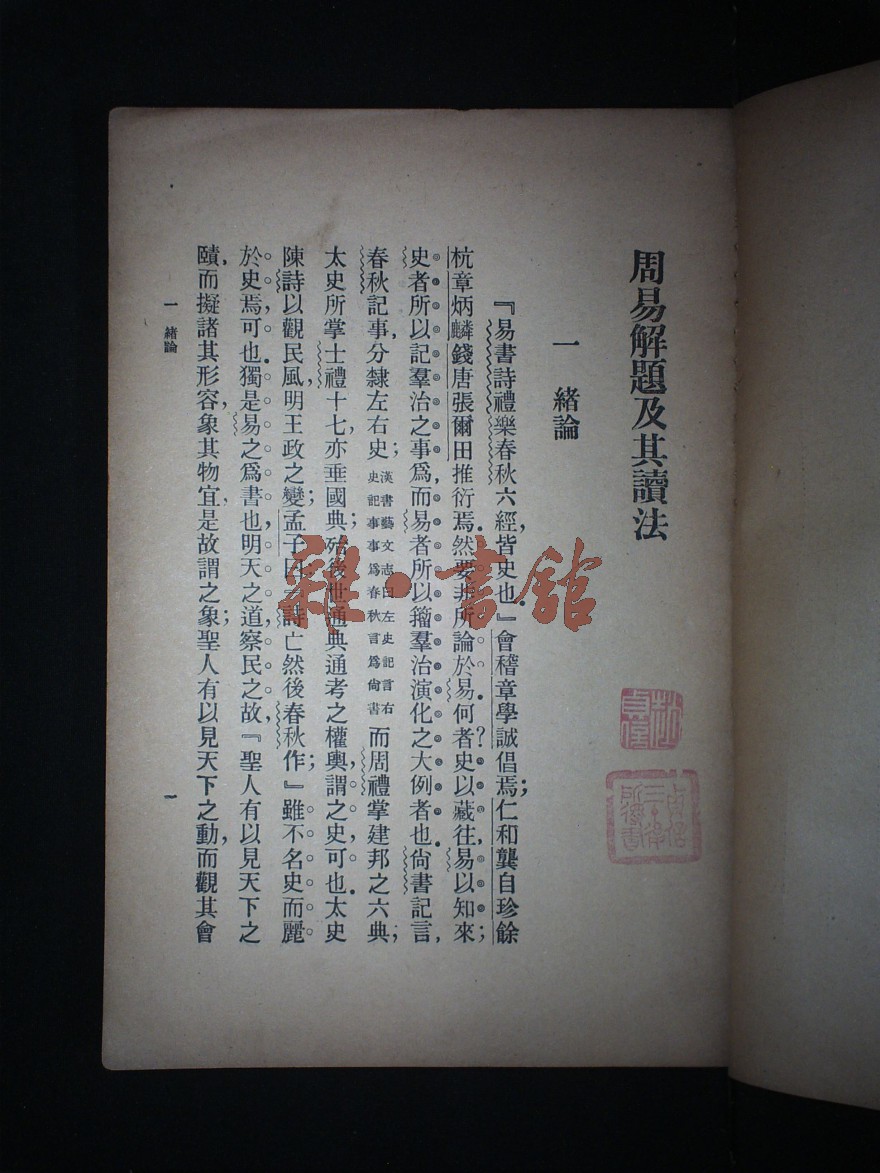 周易解題及其讀法
一 緒論
『易書詩禮樂春秋六經，皆史也。』會稽章學誠倡焉；仁和龔自珍餘
杭章炳麟錢唐張爾田推衍焉。然要非所論於易。何者？史以藏往，易以知來；
史者所以記羣治之事爲，而易者所以籀羣治演化之大例者也。尙書記言，
春秋記事，分隸左右史；漢書藝文志曰左史記言右史記事事爲春秋言爲尙書而周禮掌建邦之六典；
太史所掌士禮十七，亦垂國典；後世通典通考之權輿，謂之史可也。太史
陳詩以觀民風，明王政之變；孟子曰：『詩亡然後春秋作；』雖不名史而麗
於史焉，可也。獨是易之爲書也，明天之道，察民之故，『聖人有以見天下之
賾，而擬諸其形容，象其物宜，是故謂之象；聖人有以見天下之動，而觀其會
一 緒論
一
雜·書館